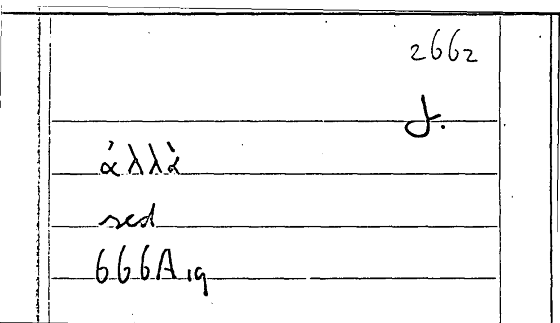 2662
d.
ἀλλὰ
sed
666A19